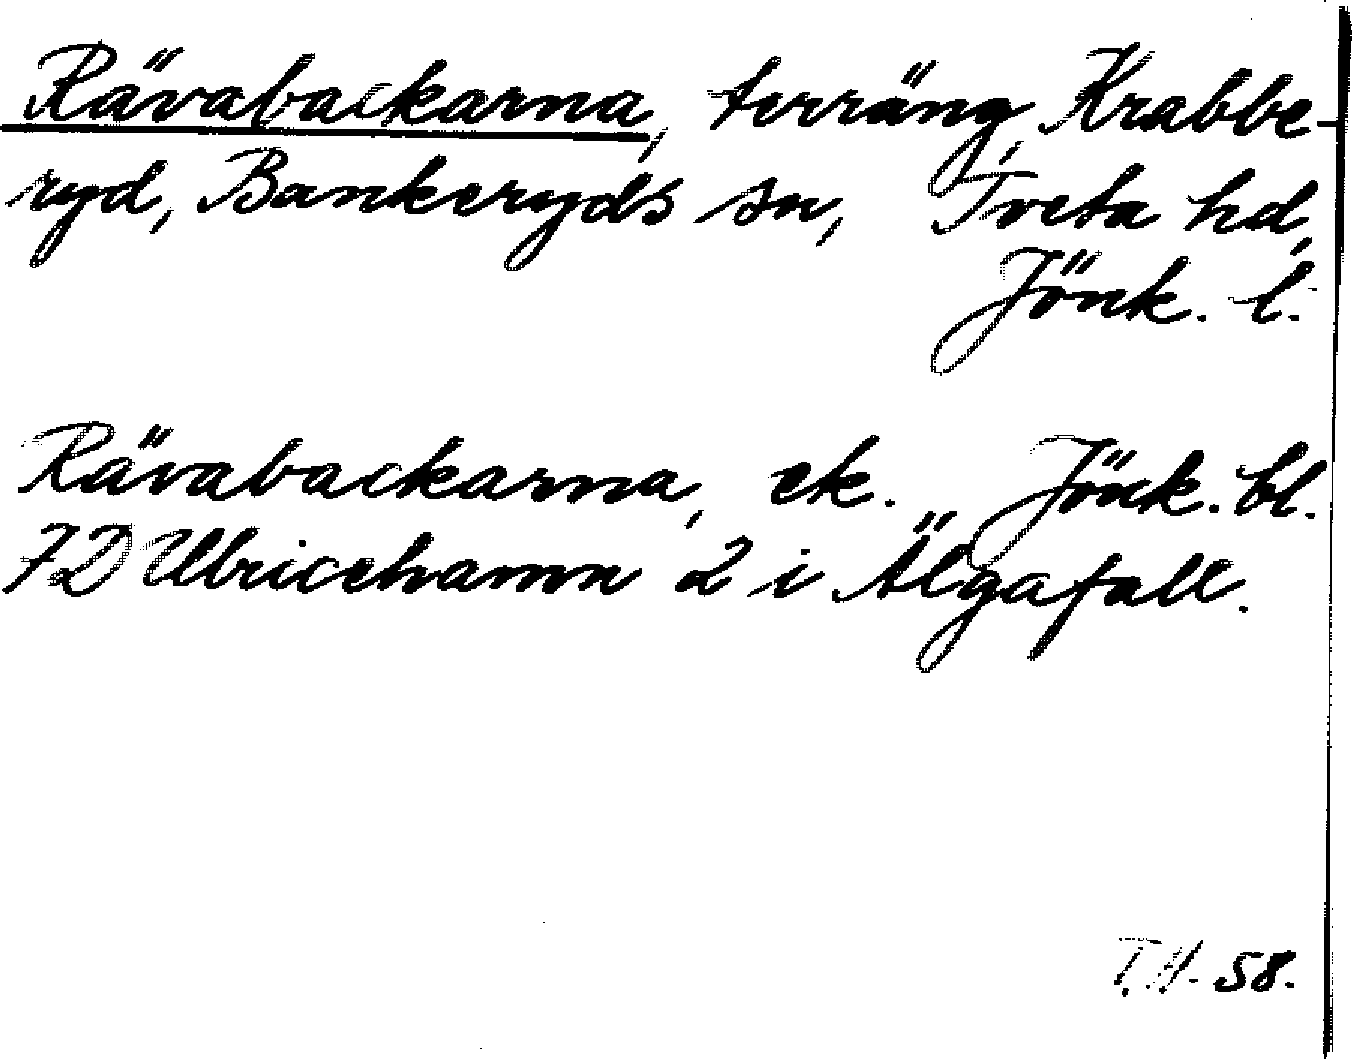 Rävabackarna, terräng, Krabbe-
ryd, Bankeryds sn, Tveta hd,
Jönk. l.
Rävabackarna, ek. Jönk. bl.
7D Ulricehamn 2 i Älgafall.
T.H. 58.